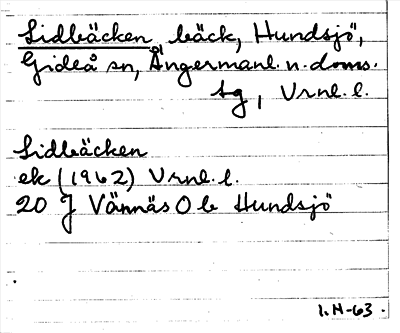 Lidbäcken, bäck, Hundsjö,
Gideå sn, Ångermanl. n. doms.
tg, Vrnl. l.
Lidbäcken
ek (1962) Vrnl. l.
20 J Vännäs O b Hundsjö
1. N-63.